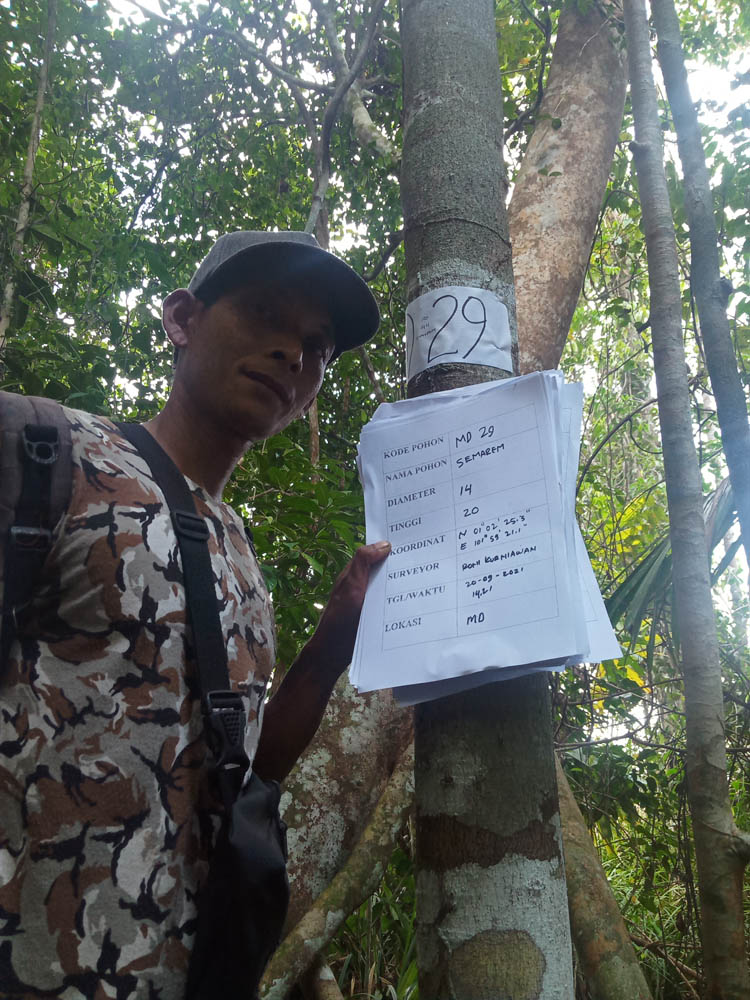 29
KODE POHON MD 29
NAMA POHON SEMAREM
DIAMETER 14
TINGGI 20
KOORDINAT N 01° 02' 25.3"
E 101° 59' 21.1"
SURVEYOR KURNIAWAN
TGL/WAKTU 20-09-2021
14.21
LOKASI MD